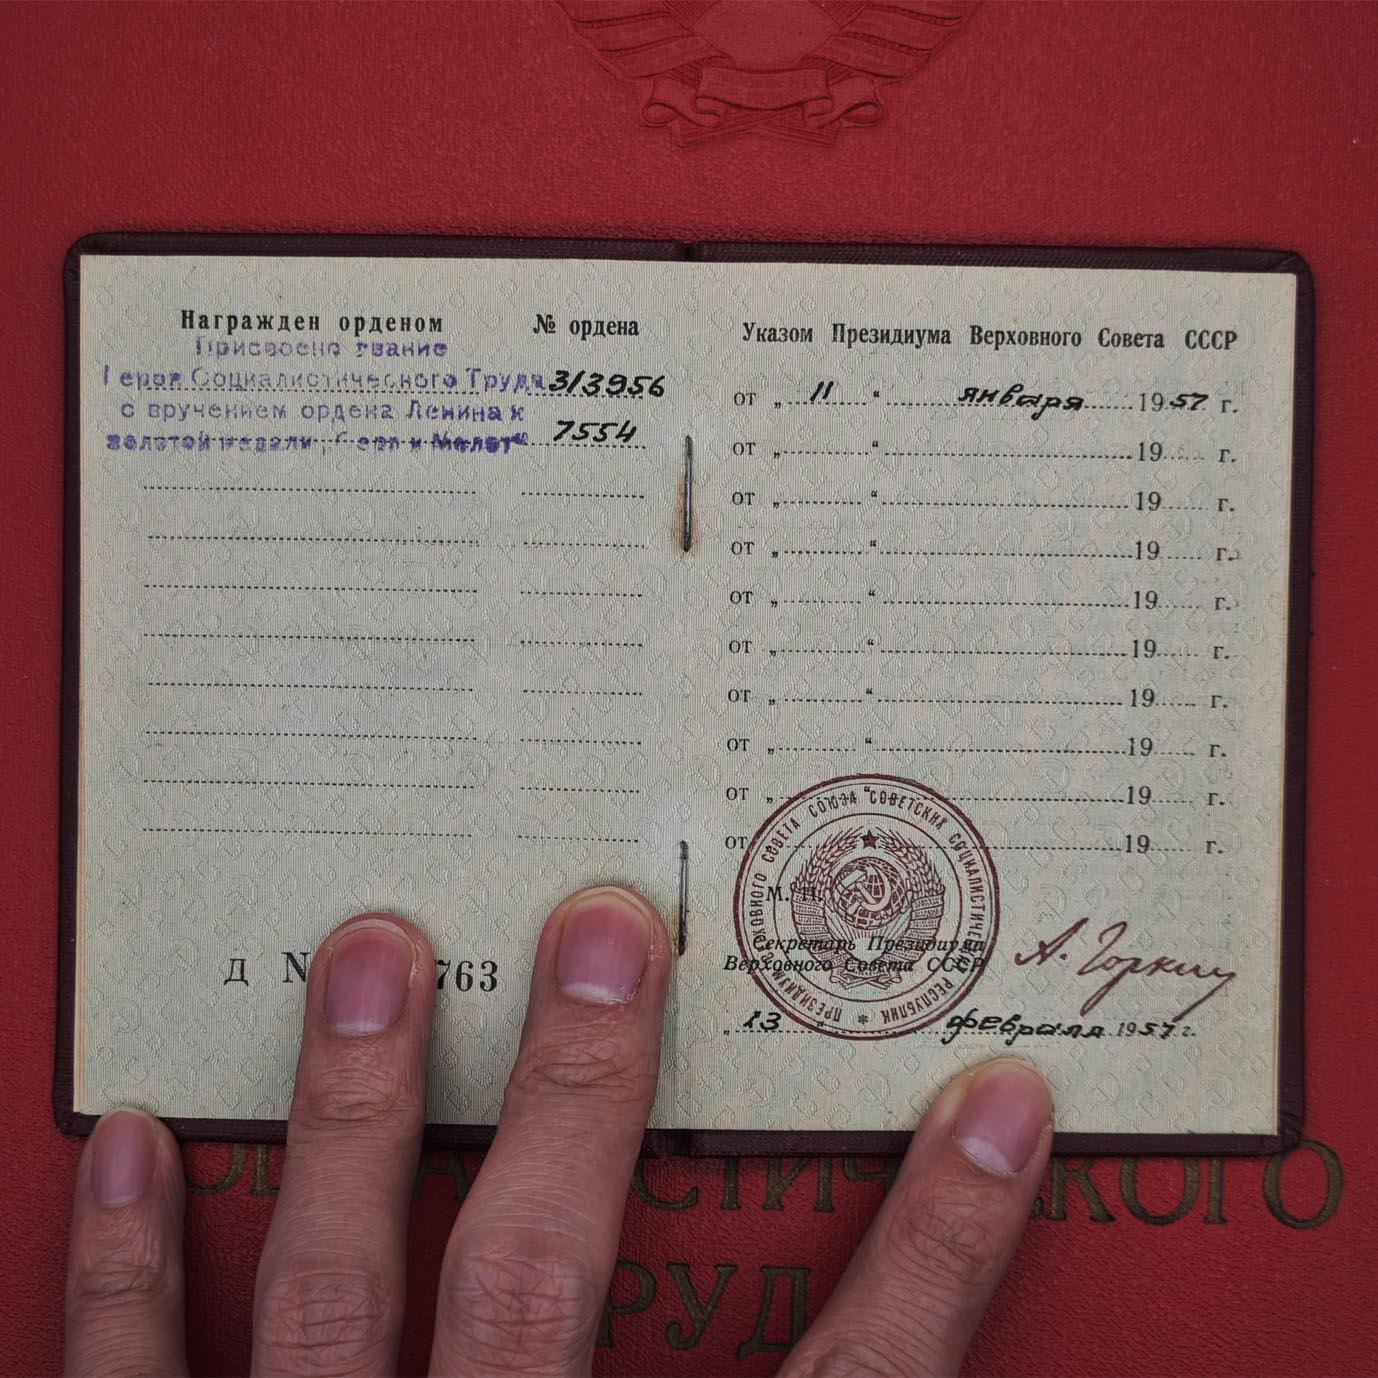 Награжден орденом № ордена
Присвоено звание
Героя Социалистического Труда 313956
с вручением ордена Ленина и
золотой медали „Серп и Молот“ 7554
Д № 763
Указом Президиума Верховного Совета СССР
от „ 11 “ января 1957 г.
от „ “ 19 г.
от „ “ 19 г.
от „ “ 19 г.
от „ “ 19 г.
от „ “ 19 г.
от „ “ 19 г.
от „ “ 19 г.
от „ “ 19 г.
от 19 г.
ПРЕЗИДИУМ ВЕРХОВНОГО СОВЕТА СОЮЗА СОВЕТСКИХ СОЦИАЛИСТИЧЕСКИХ РЕСПУБЛИК *
М. П.
Секретарь Президиума
Верховного Совета СССР
А. Горкин
„ 13 “ февраля 1957 г.